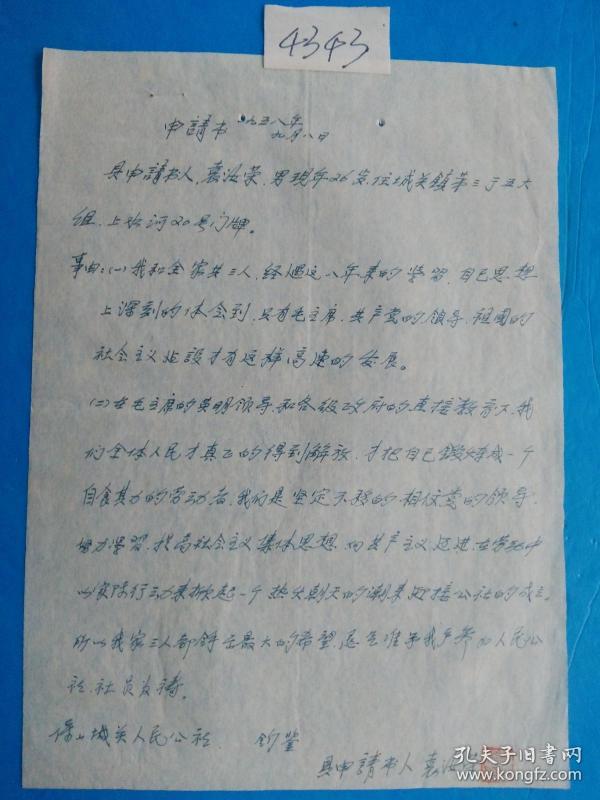 4343
申請书 一九五八年
九月八日
具申請书人，袁汝荣，男现年26岁，住城关鎮第三丁五大
组，上 河20号门牌。
事由：(一)我和全家共三人，经过这八年来的学習，自己思想
上深刻的体会到，只有毛主席，共产党的领导，祖国的
社会主义建設才有这样高速的发展。
(二)在毛主席的英明领导，和各级政府的直接教育下，我
们全体人民才真正的得到解放，才把自己锻炼成一个
自食其力的劳动者，我们是坚定不移的相信党的领导，
努力学習，提高社会主义集体思想，向共产主义迈进，在劳动中
以实际行动来掀起一个热火朝天的潮来迎接公社的成立。
所以我家三人都 最大的希望，恳乞准予我户参加人民公
社，社员为祷。
城关人民公社 钧鉴
具申請书人 袁汝荣
孔夫子旧书网
www.kongfz.com